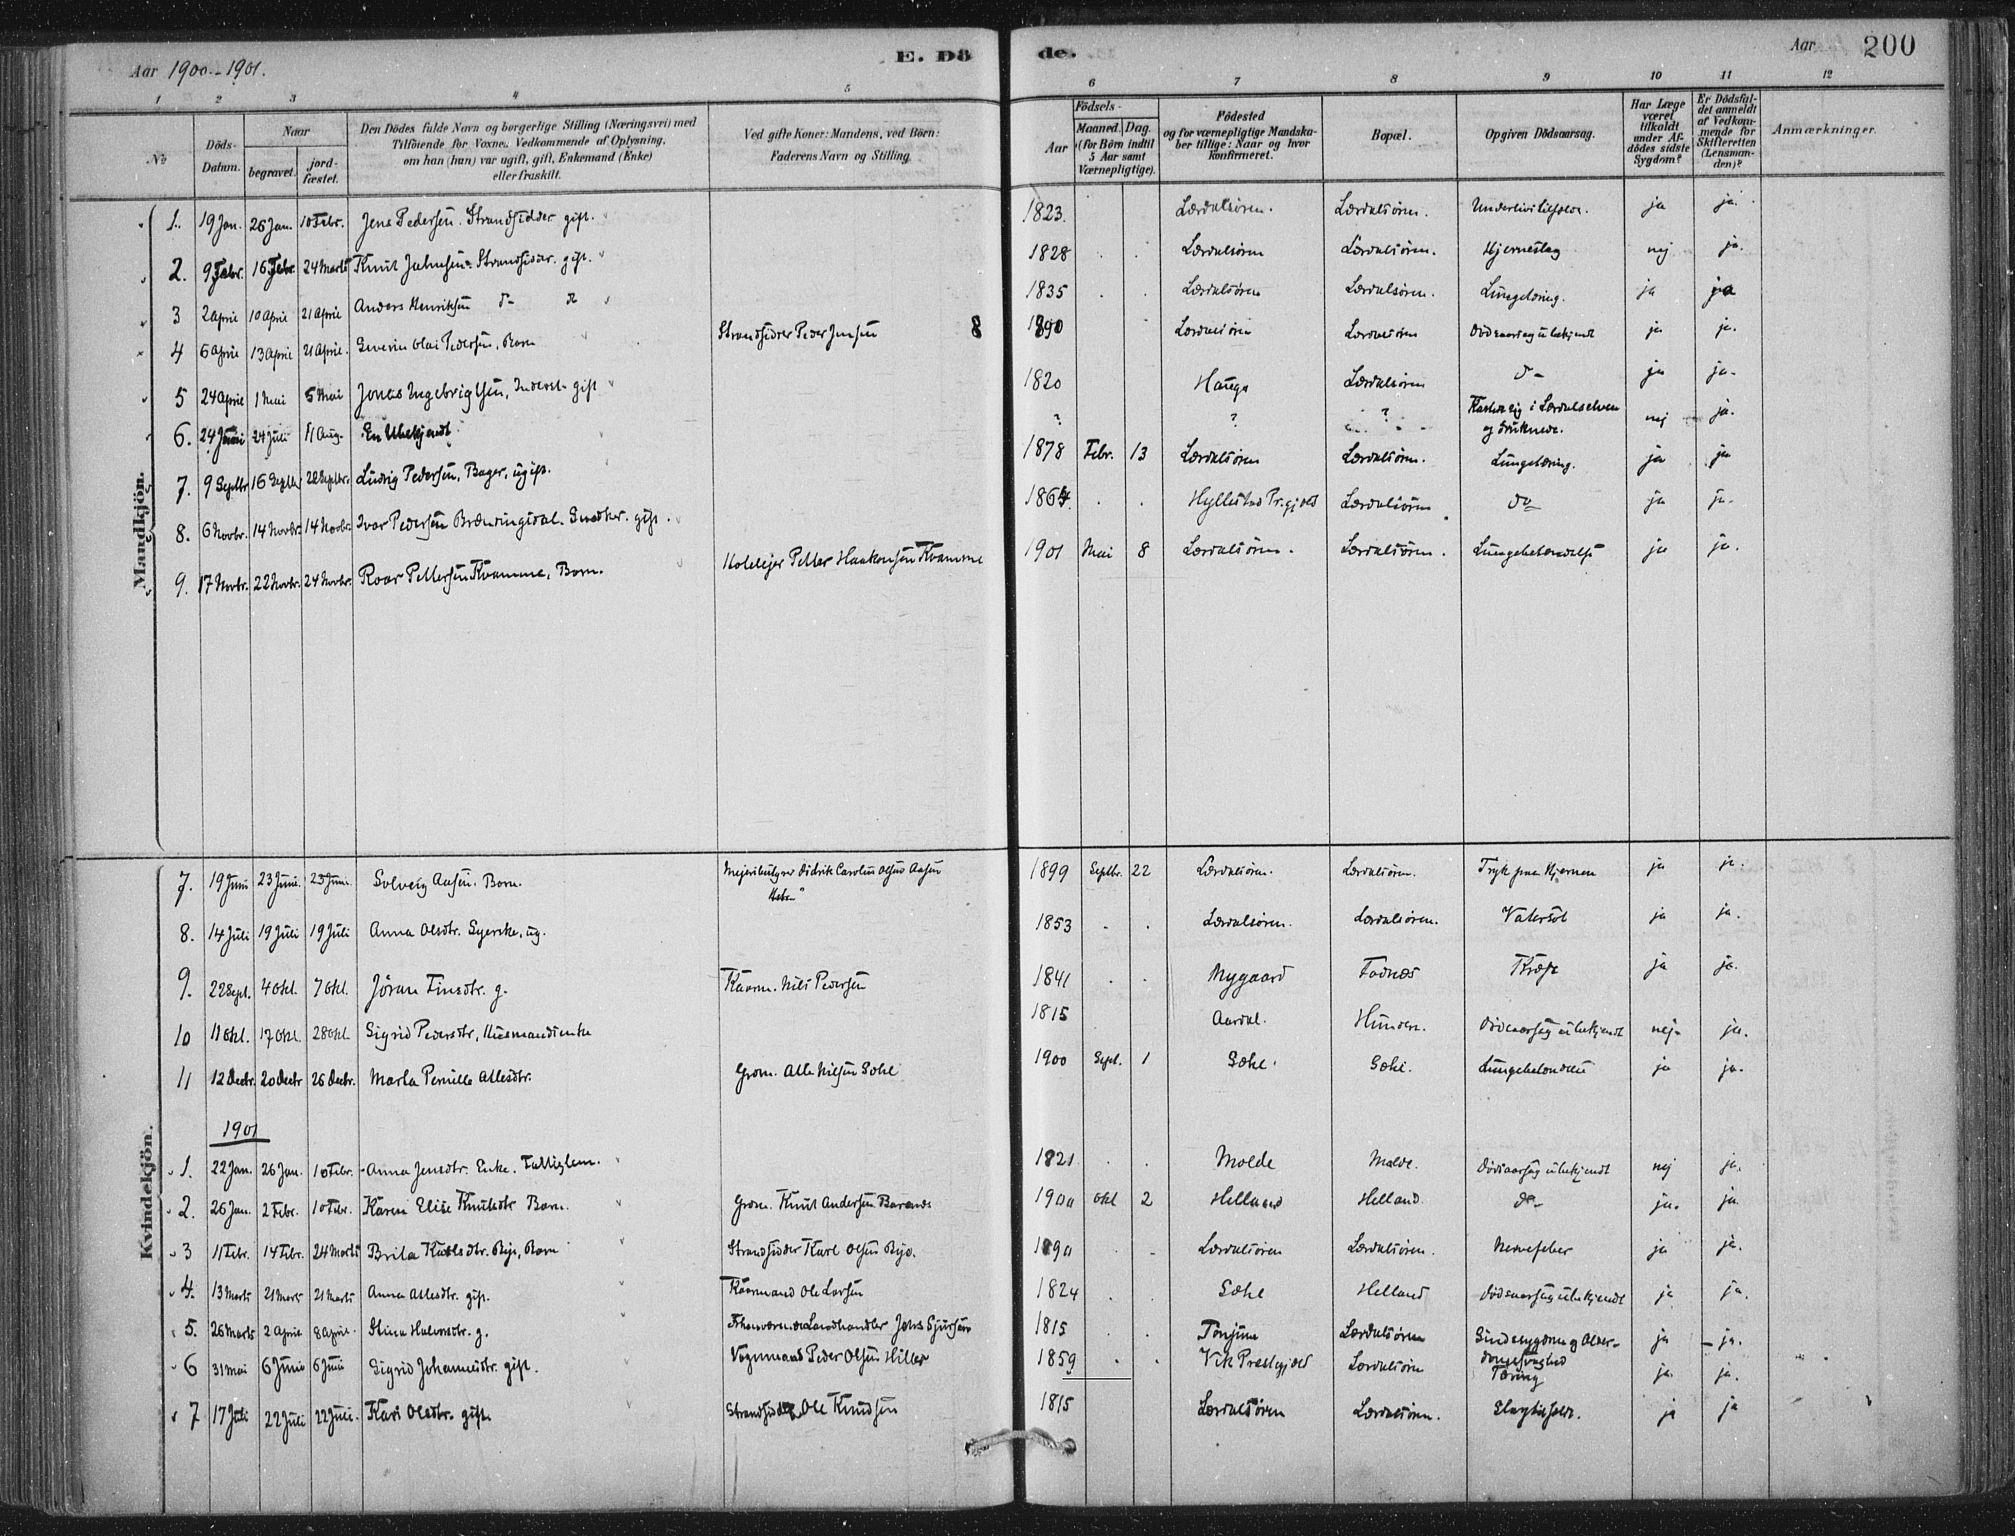 Aar 1900-1901. E. Dö
de. Aar 200
1 2 3 4 5
6 7 8 9 10 11 12
No Döds-Datum. Naar begravet. jordfæstet.
Den Dödes fulde Navn og borgerlige Stilling (Næringsvei) med
Tilföiende for Voxne Vedkommende af Oplysning,
om han (hun) var ugift, gift, Enkemand (Enke)
eller fraskilt.
Ved gifte Koner: Mandens, ved Börn:
Faderens Navn og Stilling.
Födsels-
Aar Maaned. Dag.
(for Börn indtil 5 Aar samt Værnepligtige).
Födested
og for værnepligtige Mandskaber tillige: Naar og hvor konfirmeret.
Bopæl. Opgiven Dödsaarsag.
Har Læge været tilkaldt under Afdödes sidste Sygdom?
Er Dödsfaldet anmeldt af Vedkommende for Skifteretten (Lensmanden)?
Anmærkninger.
Mandkjön.
1. 19 Jan. 26 Jan. 10 Febr. Jens Pedersen. Strandsidder gift. 1823. Lærdalsören. Lærdalsören. ja ja.
2. 9 Febr. 16 Febr. 24 Marts Knut Strandsidder. gift. 1828 Lærdalsören Lærdalsören. Hjerneslag nej ja.
3 2 April 10 April 21 April Anders Henriksen 1835 Lærdalsören Lærdalsören. Lungetæring. ja ja
4 6 April 13 April 21 April. Severin Olai Pedersen, Barn Strandsidder Peder Jensen 1890 Lærdalsören Lærdalsören Dödsaarsag ubekjendt ja ja.
5 24 April 1 Mai 5 Mai Jonas Ingebrigtsen, Inderst gift 1820 Hauge Lærdalsören do ja ja.
6. 24 Juni 24 Juli 11 Aug. En Ubekjendt. ? ? ? Kastede sig i Lærdalselven og druknede. nej ja.
7. 9 Septbr 16 Septbr 22 Septbr. Ludvig Pedersen, Bager, ugift. 1878 Febr. 13 Lærdalsören Lærdalsören. Lungetæring. ja ja
8. 6 Novbr. 14 Novbr. 14 Novbr. Ivar Pedersen Snedker. gift. 1864 Hyllestad Pr.gjeld Lærdalsören do ja ja.
9. 17 Novbr. 22 Novbr. 24 Novbr. Roar Pettersen Kvamme, Barn. Hotelejer Petter Haakonsen Kvamme 1901 Mai 8 Lærdalsören. Lærdalsören. Lungebetændelse ja ja.
Kvindekjön.
7. 19 Juni 23 Juni. 23 Juni. Solveig Aasen. Barn. Meieribestyrer Didrik Carolus Olsen Aasen 1899 Septbr. 22 Lærdalsören. Lærdalsören. Tryk paa Hjernen ja ja.
8. 14 Juli 19 Juli 19 Juli Anna Olsdtr. ug. 1853 Lærdalsören. Lærdalsören. Vatersot ja ja.
9. 22 Sept. 4 Okt. 7 Okt. Jöran Finsdtr. g. Kaarm. Nils Pedersen 1841 Nygaard Fodnæs Kræft ja ja.
10 11 Okt. 17 Okt. 28 Okt. Sigrid Pedersdtr, Husmandsenke 1815 Aardal. Hunderi. Dödsaarsag ubekjendt nej. ja.
11 12 Decbr 20 Decbr 26 Decbr. Marta Pernille Atlesdtr. Grdm. Atle Nilsen Sæhle 1900 Sept. 1 ja ja.
1901
1. 22 Jan. 26 Jan. 10 Febr. Anna Jensdtr. Enke. Fattiglem. 1821 Molde Molde. Dödsaarsag ubekjendt nej ja.
2. 26 Jan. 2 Febr. 10 Febr. Karen Elise Knutsdtr Barn. Grdm. Knut Andersen 1900 Okt 2 Helland Helland do ja. ja
3 11 Febr. 14 Febr. 24 Marts Brita Karlsdtr. Rye, Barn Strandsidder Karl Olsen Rye. Lærdalsören Lærdalsören. Nervefeber ja ja.
4. 13 Marts 21 Marts 21 Marts Anna Atlesdtr. gift. Kaarmand Ole Larsen 1824 Helland Dödsaarsag ubekjendt ja ja.
5. 26 Marts 2 April 8 April. Stina g. Landhandler Jens Sjursen 1815 Tönjum Lærdalsören Sindssygdom og Alderdomssvaghed ja ja.
6 31 Mai 6 Juni 6 Juni Sigrid Johannesdtr. gift. Vognmand Peder Olsen 1859 Vik Prestegjeld Lærdalsören Tæring ja. ja.
7 17 Juli 22 Juli 22 Juli. Kari Olsdtr. gift. Strandsidder Ole Knudsen 1815 Lærdalsören Lærdalsören. ja ja